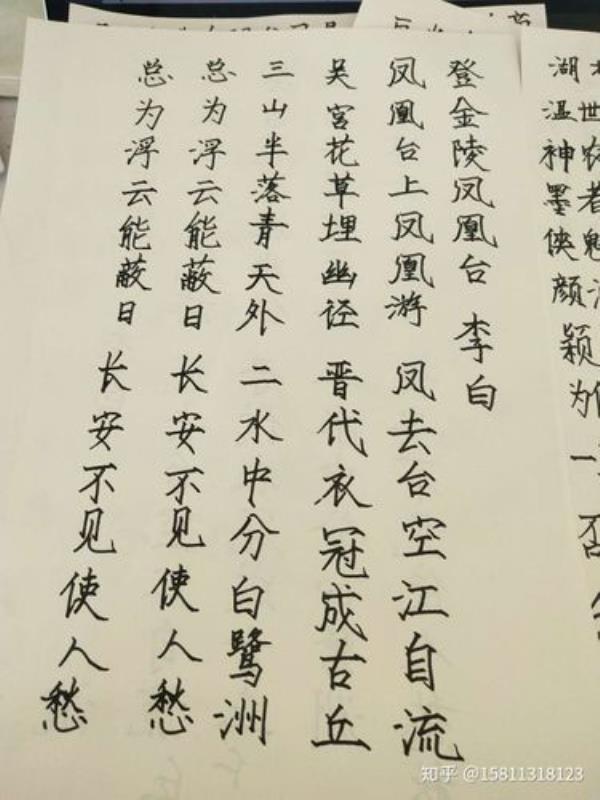 湖温神墨侠颜颖为
登金陵凤凰台 李白
凤凰台上凤凰游 凤去台空江自流
吴宫花草埋幽径 晋代衣冠成古丘
三山半落青天外 二水中分白鹭洲
总为浮云能蔽日 长安不见使人愁
总为浮云能蔽日 长安不见使人愁
知乎 @15811318123